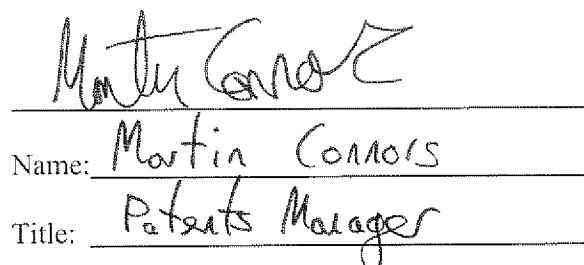 Martin Connors
Name: Martin Connors
Title: Patents Manager